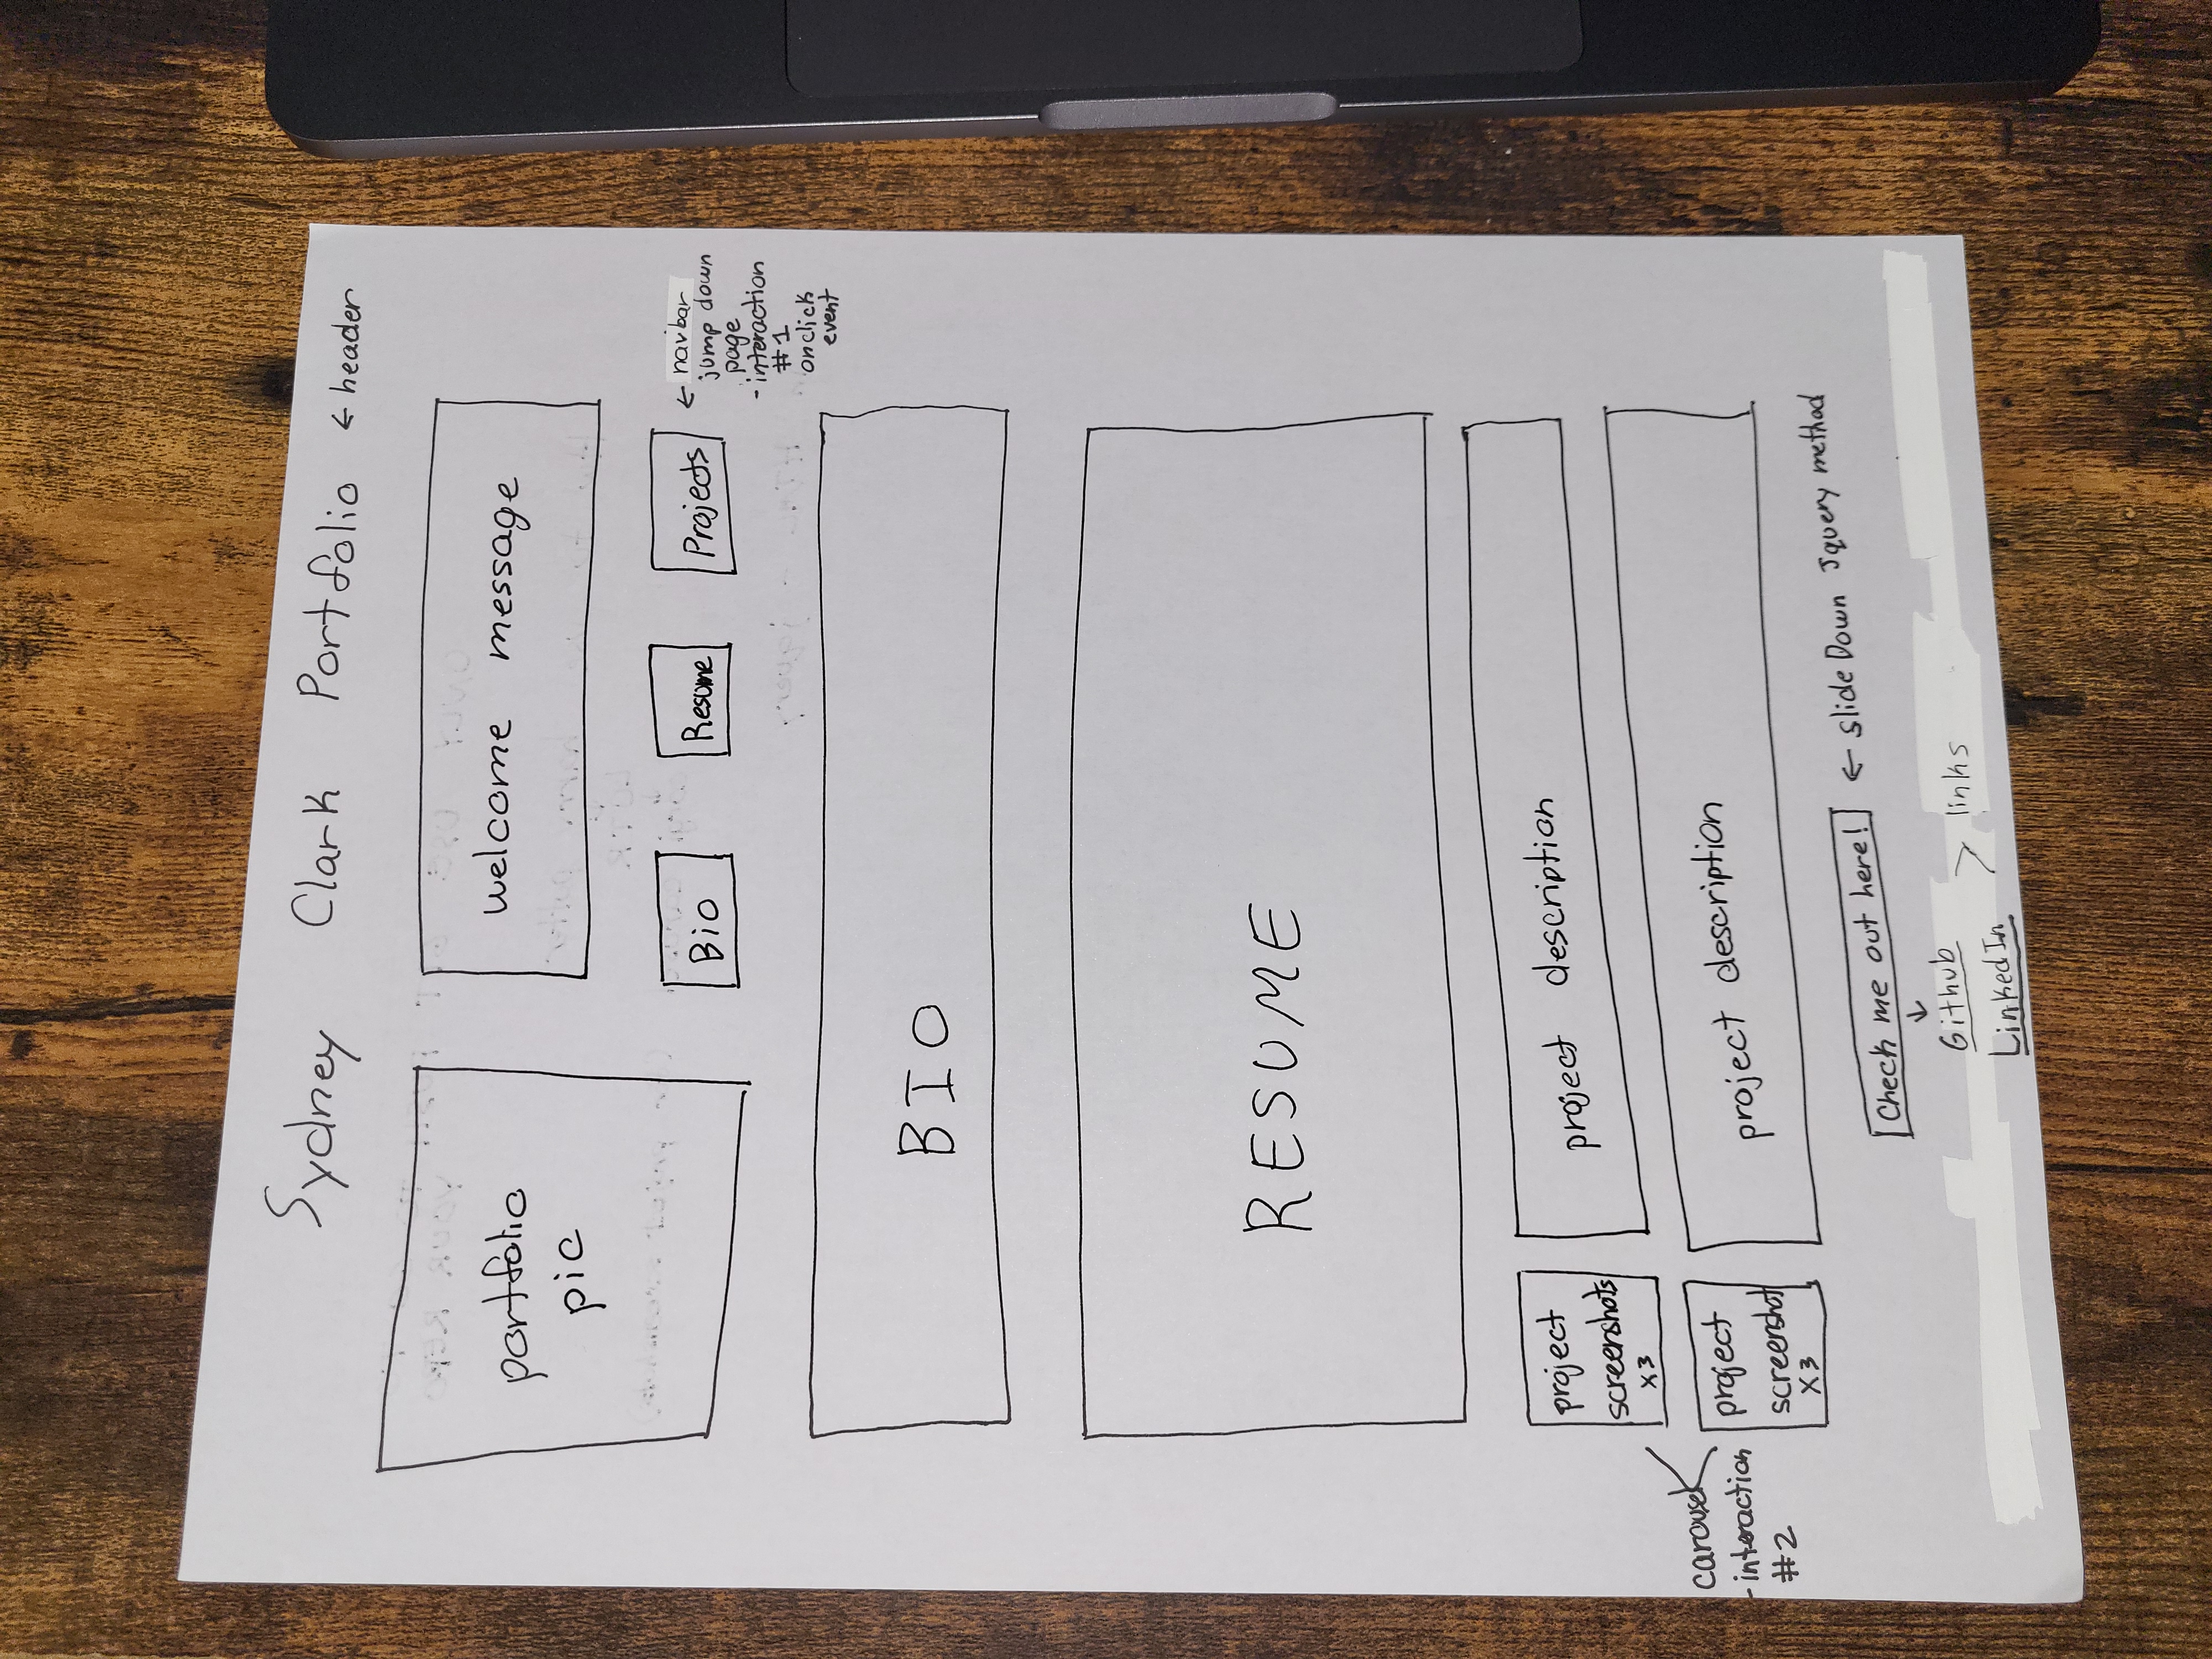 Sydney Clark Portfolio ← header
portfolio
pic
welcome message
Bio
Resume
Projects
← navbar
jump down
page
- interaction
#1
onclick
event
BIO
RESUME
project
screenshots
x3
project description
carousel
- interaction
#2
project
screenshot
x3
project description
Check me out here! ← slideDown Jquery method
↓
Github
LinkedIn
> links